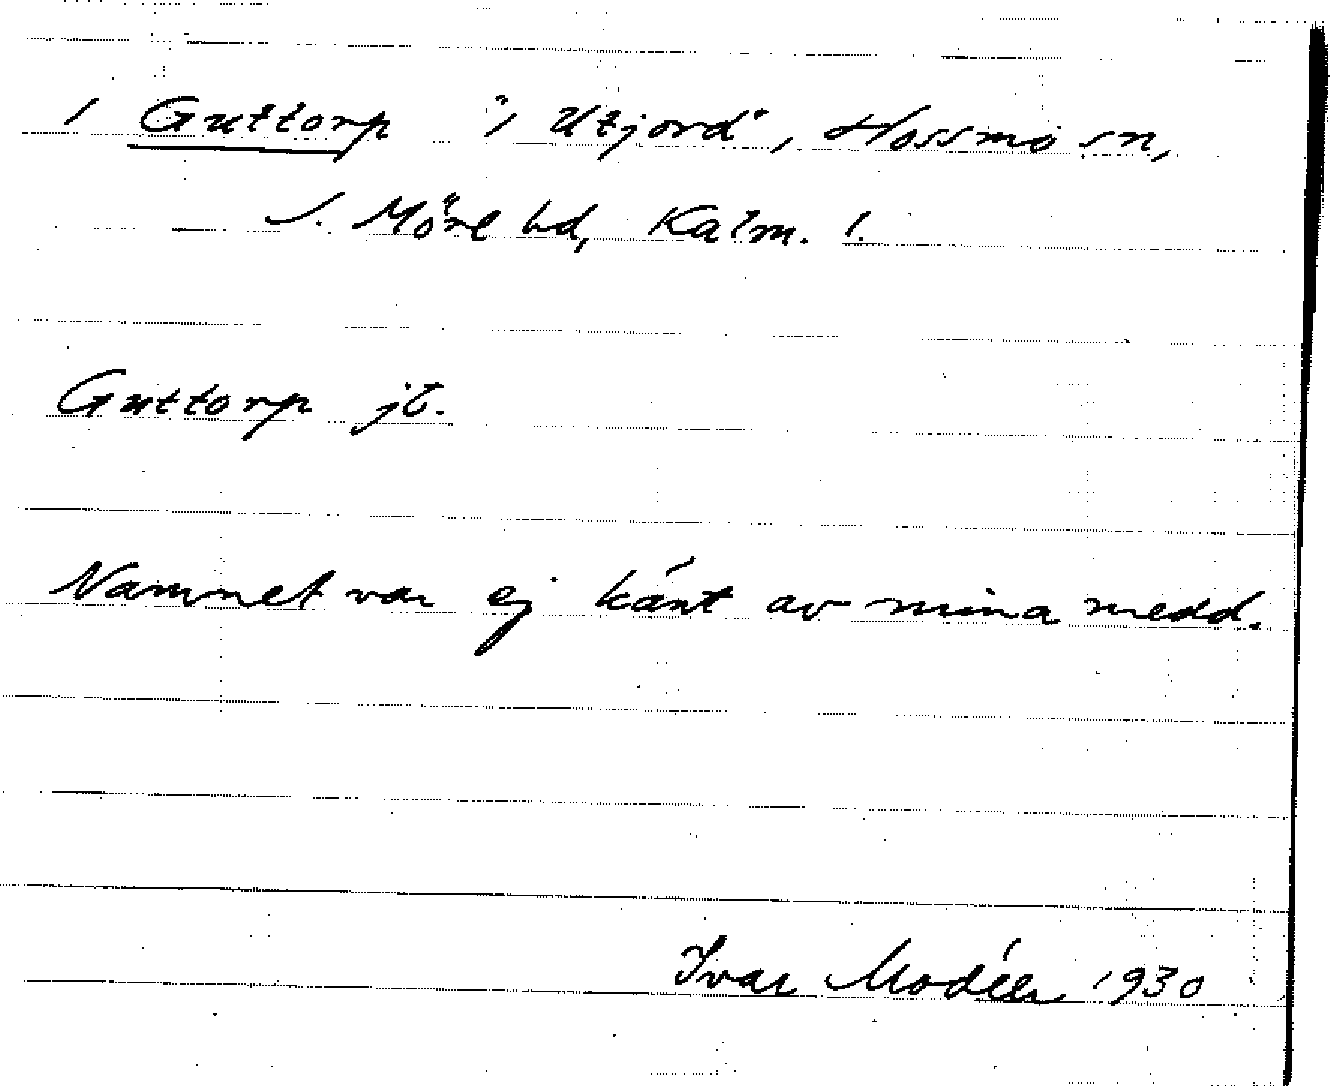 1 Guttorp "i Utjord", Hossmo sn,
S. Möre hd, Kalm. l.
Guttorp jb.
Namnet var ej känt av mina medd.
Ivar Modéer 1930